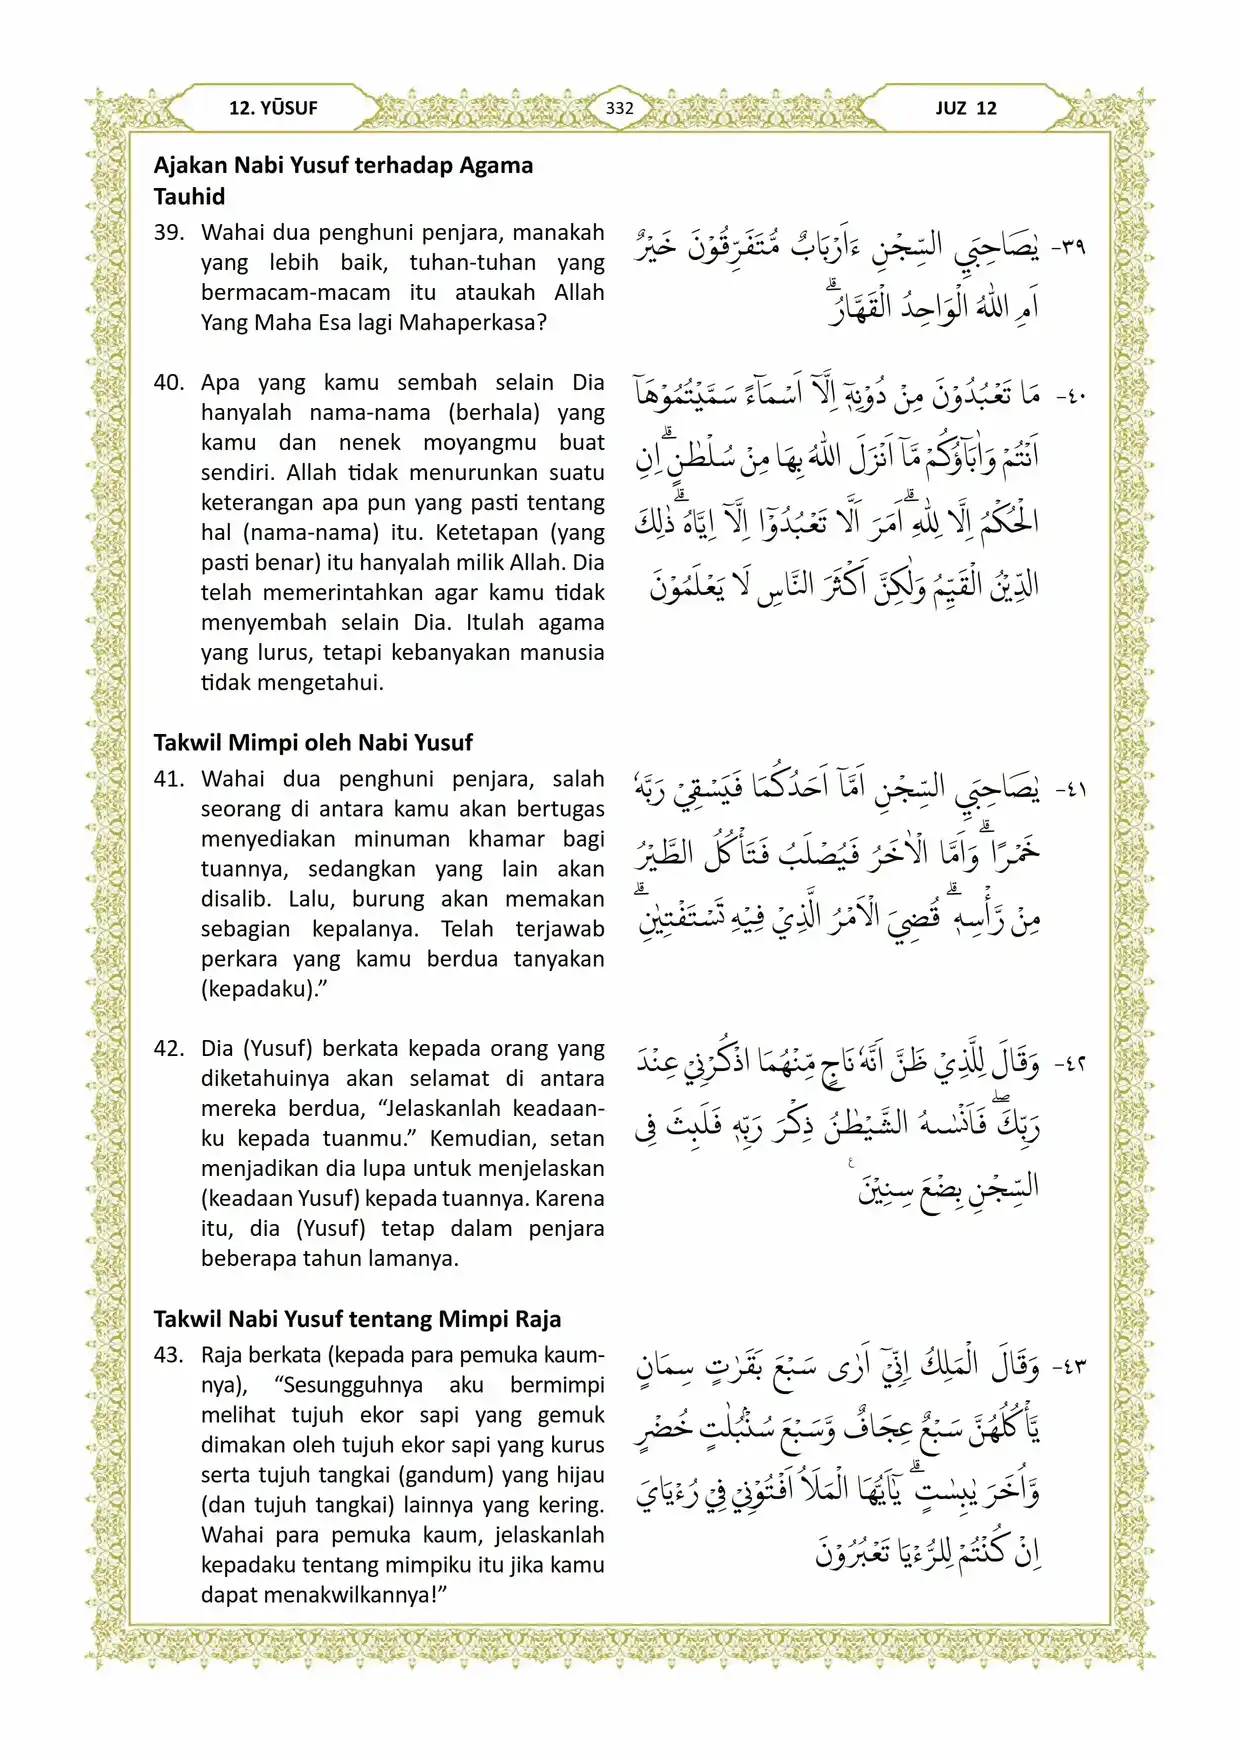 12. YŪSUF
332
JUZ 12
Ajakan Nabi Yusuf terhadap Agama
Tauhid
39. Wahai dua penghuni penjara, manakah
yang lebih baik, tuhan-tuhan yang
bermacam-macam itu ataukah Allah
Yang Maha Esa lagi Mahaperkasa?
٣٩- يٰصَاحِبَيِ السِّجْنِ ءَاَرْبَابٌ مُّتَفَرِّقُوْنَ خَيْرٌ
اَمِ اللّٰهُ الْوَاحِدُ الْقَهَّارُۗ
40. Apa yang kamu sembah selain Dia
hanyalah nama-nama (berhala) yang
kamu dan nenek moyangmu buat
sendiri. Allah tidak menurunkan suatu
keterangan apa pun yang pasti tentang
hal (nama-nama) itu. Ketetapan (yang
pasti benar) itu hanyalah milik Allah. Dia
telah memerintahkan agar kamu tidak
menyembah selain Dia. Itulah agama
yang lurus, tetapi kebanyakan manusia
tidak mengetahui.
٤٠- مَا تَعْبُدُوْنَ مِنْ دُوْنِهٖٓ اِلَّآ اَسْمَاۤءً سَمَّيْتُمُوْهَآ
اَنْتُمْ وَاٰبَاۤؤُكُمْ مَّآ اَنْزَلَ اللّٰهُ بِهَا مِنْ سُلْطٰنٍۗ اِنِ
الْحُكْمُ اِلَّا لِلّٰهِۗ اَمَرَ اَلَّا تَعْبُدُوْٓا اِلَّآ اِيَّاهُۗ ذٰلِكَ
الدِّيْنُ الْقَيِّمُ وَلٰكِنَّ اَكْثَرَ النَّاسِ لَا يَعْلَمُوْنَ
Takwil Mimpi oleh Nabi Yusuf
41. Wahai dua penghuni penjara, salah
seorang di antara kamu akan bertugas
menyediakan minuman khamar bagi
tuannya, sedangkan yang lain akan
disalib. Lalu, burung akan memakan
sebagian kepalanya. Telah terjawab
perkara yang kamu berdua tanyakan
(kepadaku).”
٤١- يٰصَاحِبَيِ السِّجْنِ اَمَّآ اَحَدُكُمَا فَيَسْقِيْ رَبَّهٗ
خَمْرًاۗ وَاَمَّا الْاٰخَرُ فَيُصْلَبُ فَتَأْكُلُ الطَّيْرُ
مِنْ رَّأْسِهٖۗ قُضِيَ الْاَمْرُ الَّذِيْ فِيْهِ تَسْتَفْتِيٰنِۗ
42. Dia (Yusuf) berkata kepada orang yang
diketahuinya akan selamat di antara
mereka berdua, “Jelaskanlah keadaan-
ku kepada tuanmu.” Kemudian, setan
menjadikan dia lupa untuk menjelaskan
(keadaan Yusuf) kepada tuannya. Karena
itu, dia (Yusuf) tetap dalam penjara
beberapa tahun lamanya.
٤٢- وَقَالَ لِلَّذِيْ ظَنَّ اَنَّهٗ نَاجٍ مِّنْهُمَا اذْكُرْنِيْ عِنْدَ
رَبِّكَۖ فَاَنْسٰىهُ الشَّيْطٰنُ ذِكْرَ رَبِّهٖ فَلَبِثَ فِى
السِّجْنِ بِضْعَ سِنِيْنَ ࣖ
Takwil Nabi Yusuf tentang Mimpi Raja
43. Raja berkata (kepada para pemuka kaum-
nya), “Sesungguhnya aku bermimpi
melihat tujuh ekor sapi yang gemuk
dimakan oleh tujuh ekor sapi yang kurus
serta tujuh tangkai (gandum) yang hijau
(dan tujuh tangkai) lainnya yang kering.
Wahai para pemuka kaum, jelaskanlah
kepadaku tentang mimpiku itu jika kamu
dapat menakwilkannya!”
٤٣- وَقَالَ الْمَلِكُ اِنِّيْٓ اَرٰى سَبْعَ بَقَرٰتٍ سِمَانٍ
يَّأْكُلُهُنَّ سَبْعٌ عِجَافٌ وَّسَبْعَ سُنْۢبُلٰتٍ خُضْرٍ
وَّاُخَرَ يٰبِسٰتٍۗ يٰٓاَيُّهَا الْمَلَاُ اَفْتُوْنِيْ فِيْ رُءْيَايَ
اِنْ كُنْتُمْ لِلرُّءْيَا تَعْبُرُوْنَ